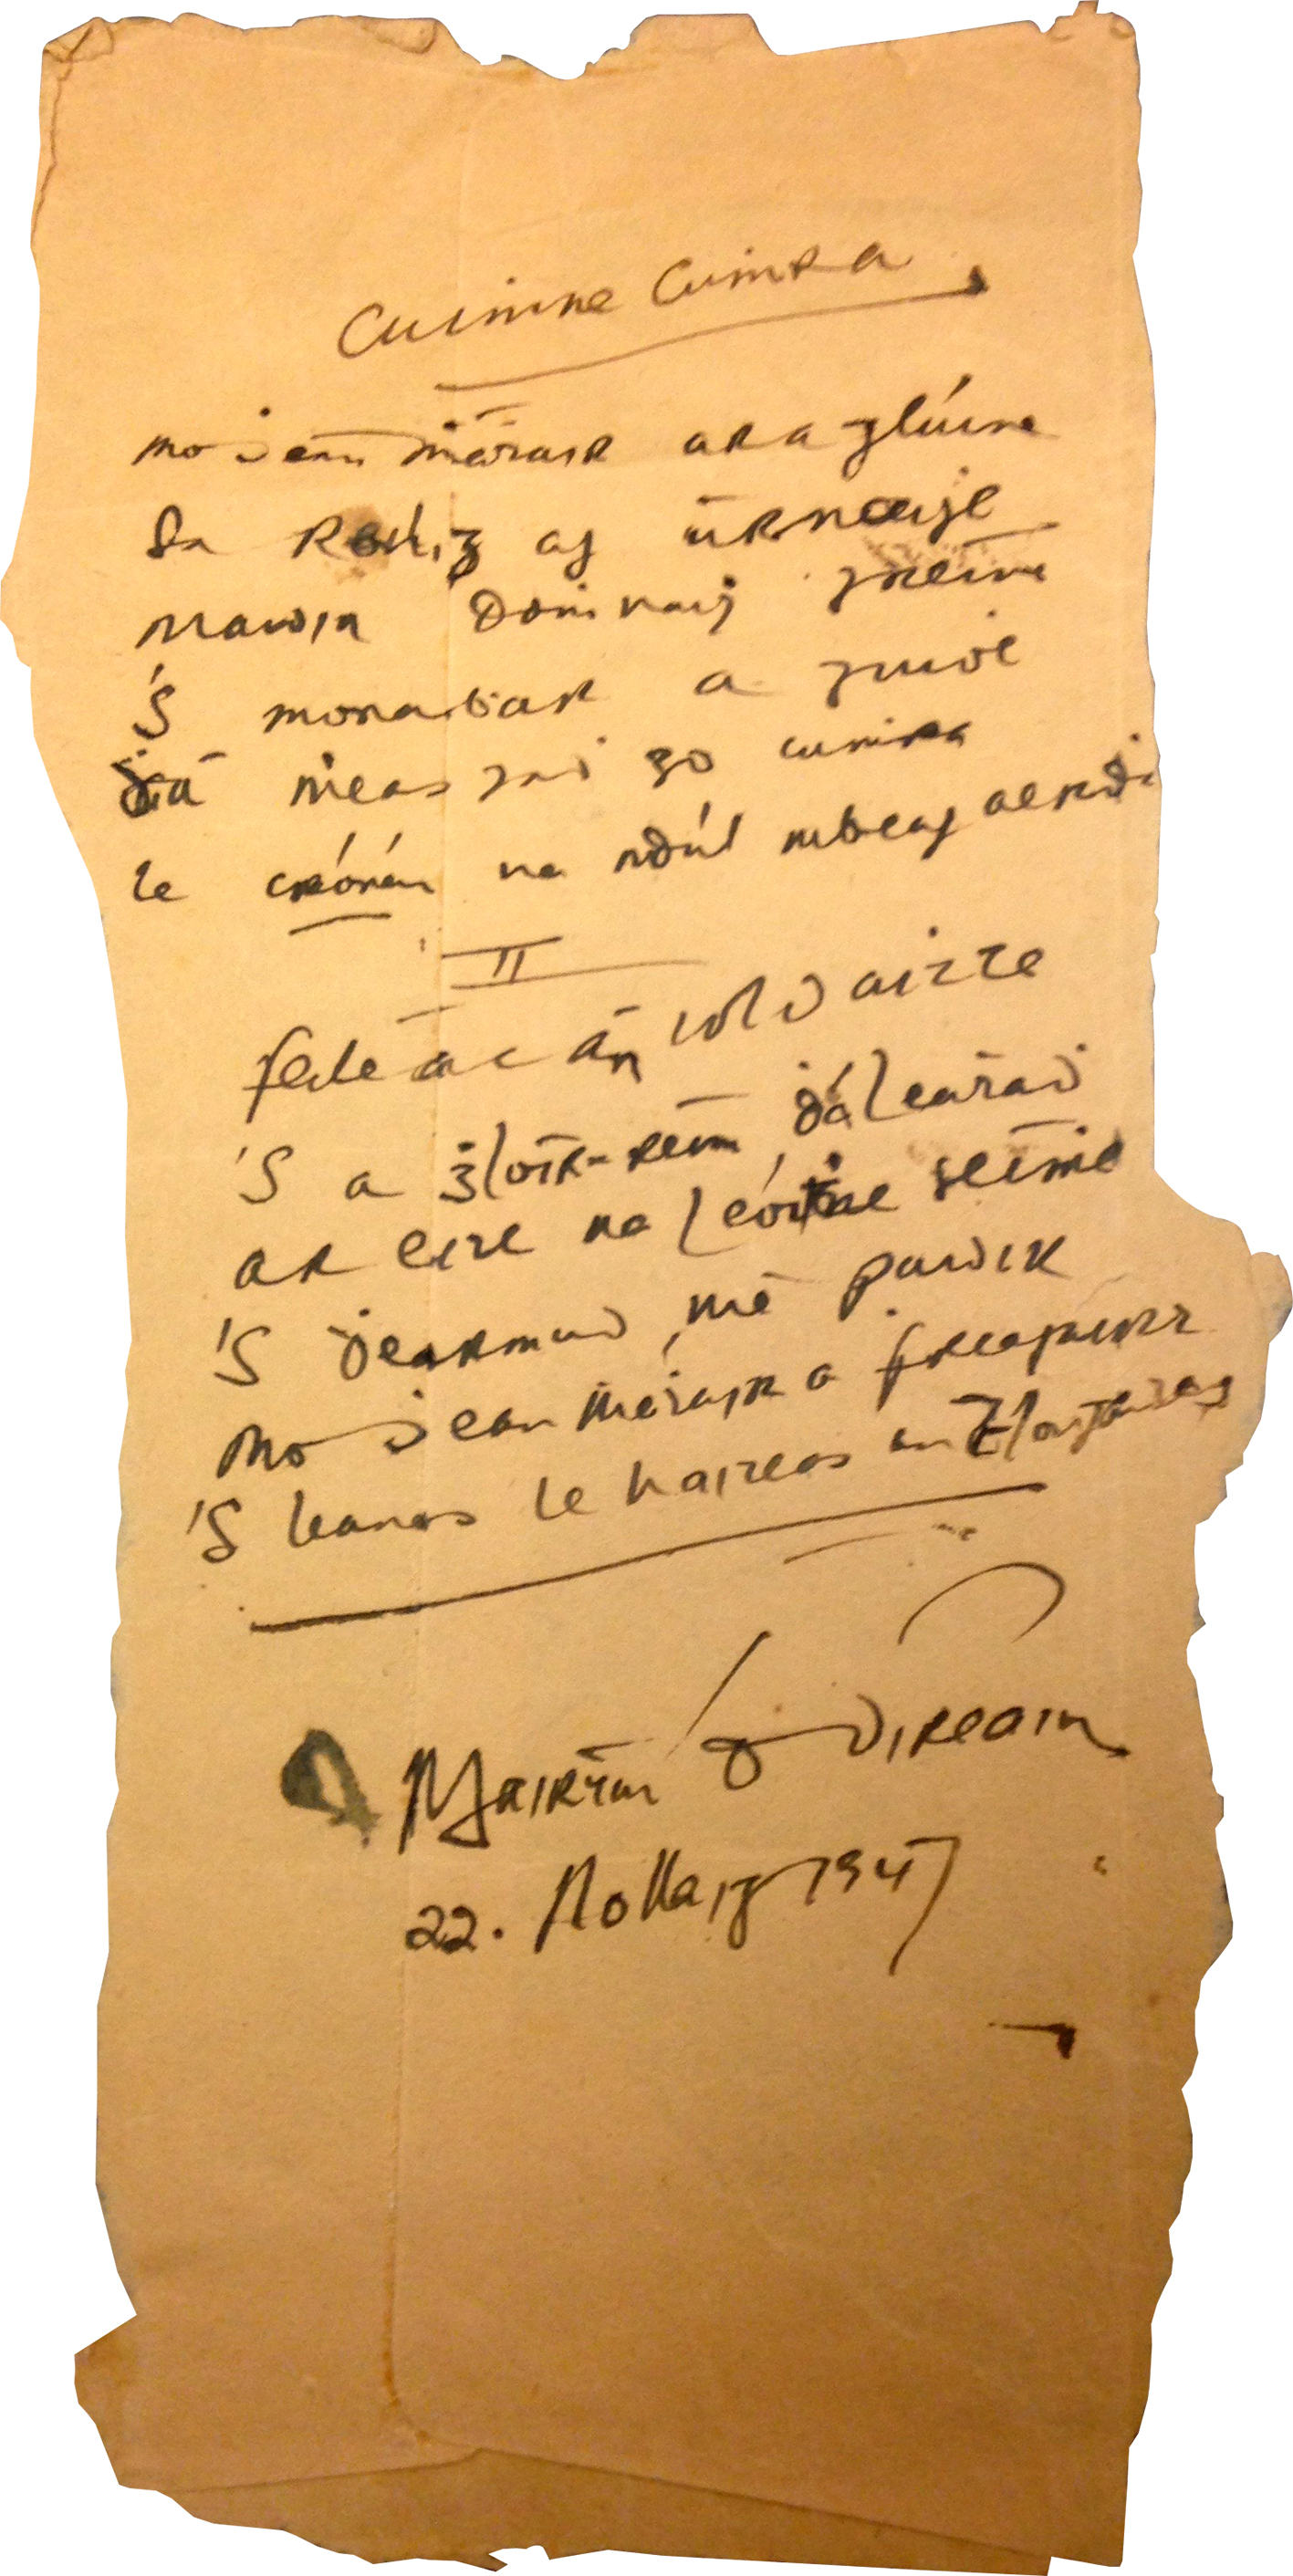 Cuiṁne Cuṁra
mo dean ṁáṫair ar a glúine
Sa Reilig ag úrnaiġe
Maidin Doṁnaiġ gréine
'S monabar a guide
Ḋá ṁeasgad go cuṁra
le crónán na ndúl mbeag aerḋa
II
féileacán ildaiṫte
'S a ġlóir-réim ḋá leaṫad
ar eite na leóiṫne séiṁe
'S ḋearmad mé paidir
mo dean ṁáṫair a freagairt
'S leanas le haiteas an
Máirtín Ó Direáin
22. Nollaig 1947